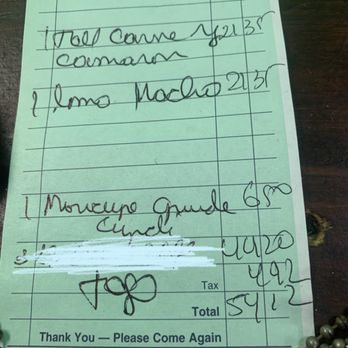 1 Tall Carne y 21 35
Camaron
1 lomo Macho 21 35
1 grande 6 50
49 20
togo Tax 4 92
Total 54 12
Thank You — Please Come Again